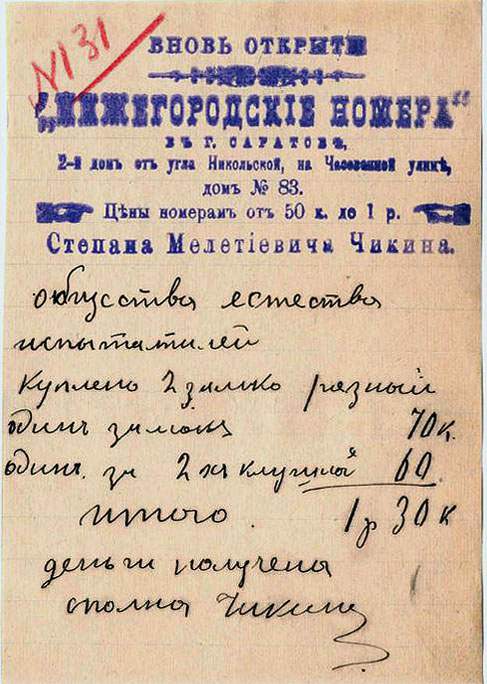 № 131
ВНОВЬ ОТКРЫТЫ
„НИЖЕГОРОДСКІЕ НОМЕРА“
ВЪ Г. САРАТОВѢ,
2-й домъ отъ угла Никольской, на Часовенной улицѣ,
домъ № 83.
Цѣны номерамъ отъ 50 к. до 1 р.
Степана Мелетіевича Чикина.
общества естества
испытателей
куплено 2 замко разный
одинъ замокъ 70 к.
один. за 2 хъ 60
итого 1 р 30 к
деньги получена
сполна Чикинъ